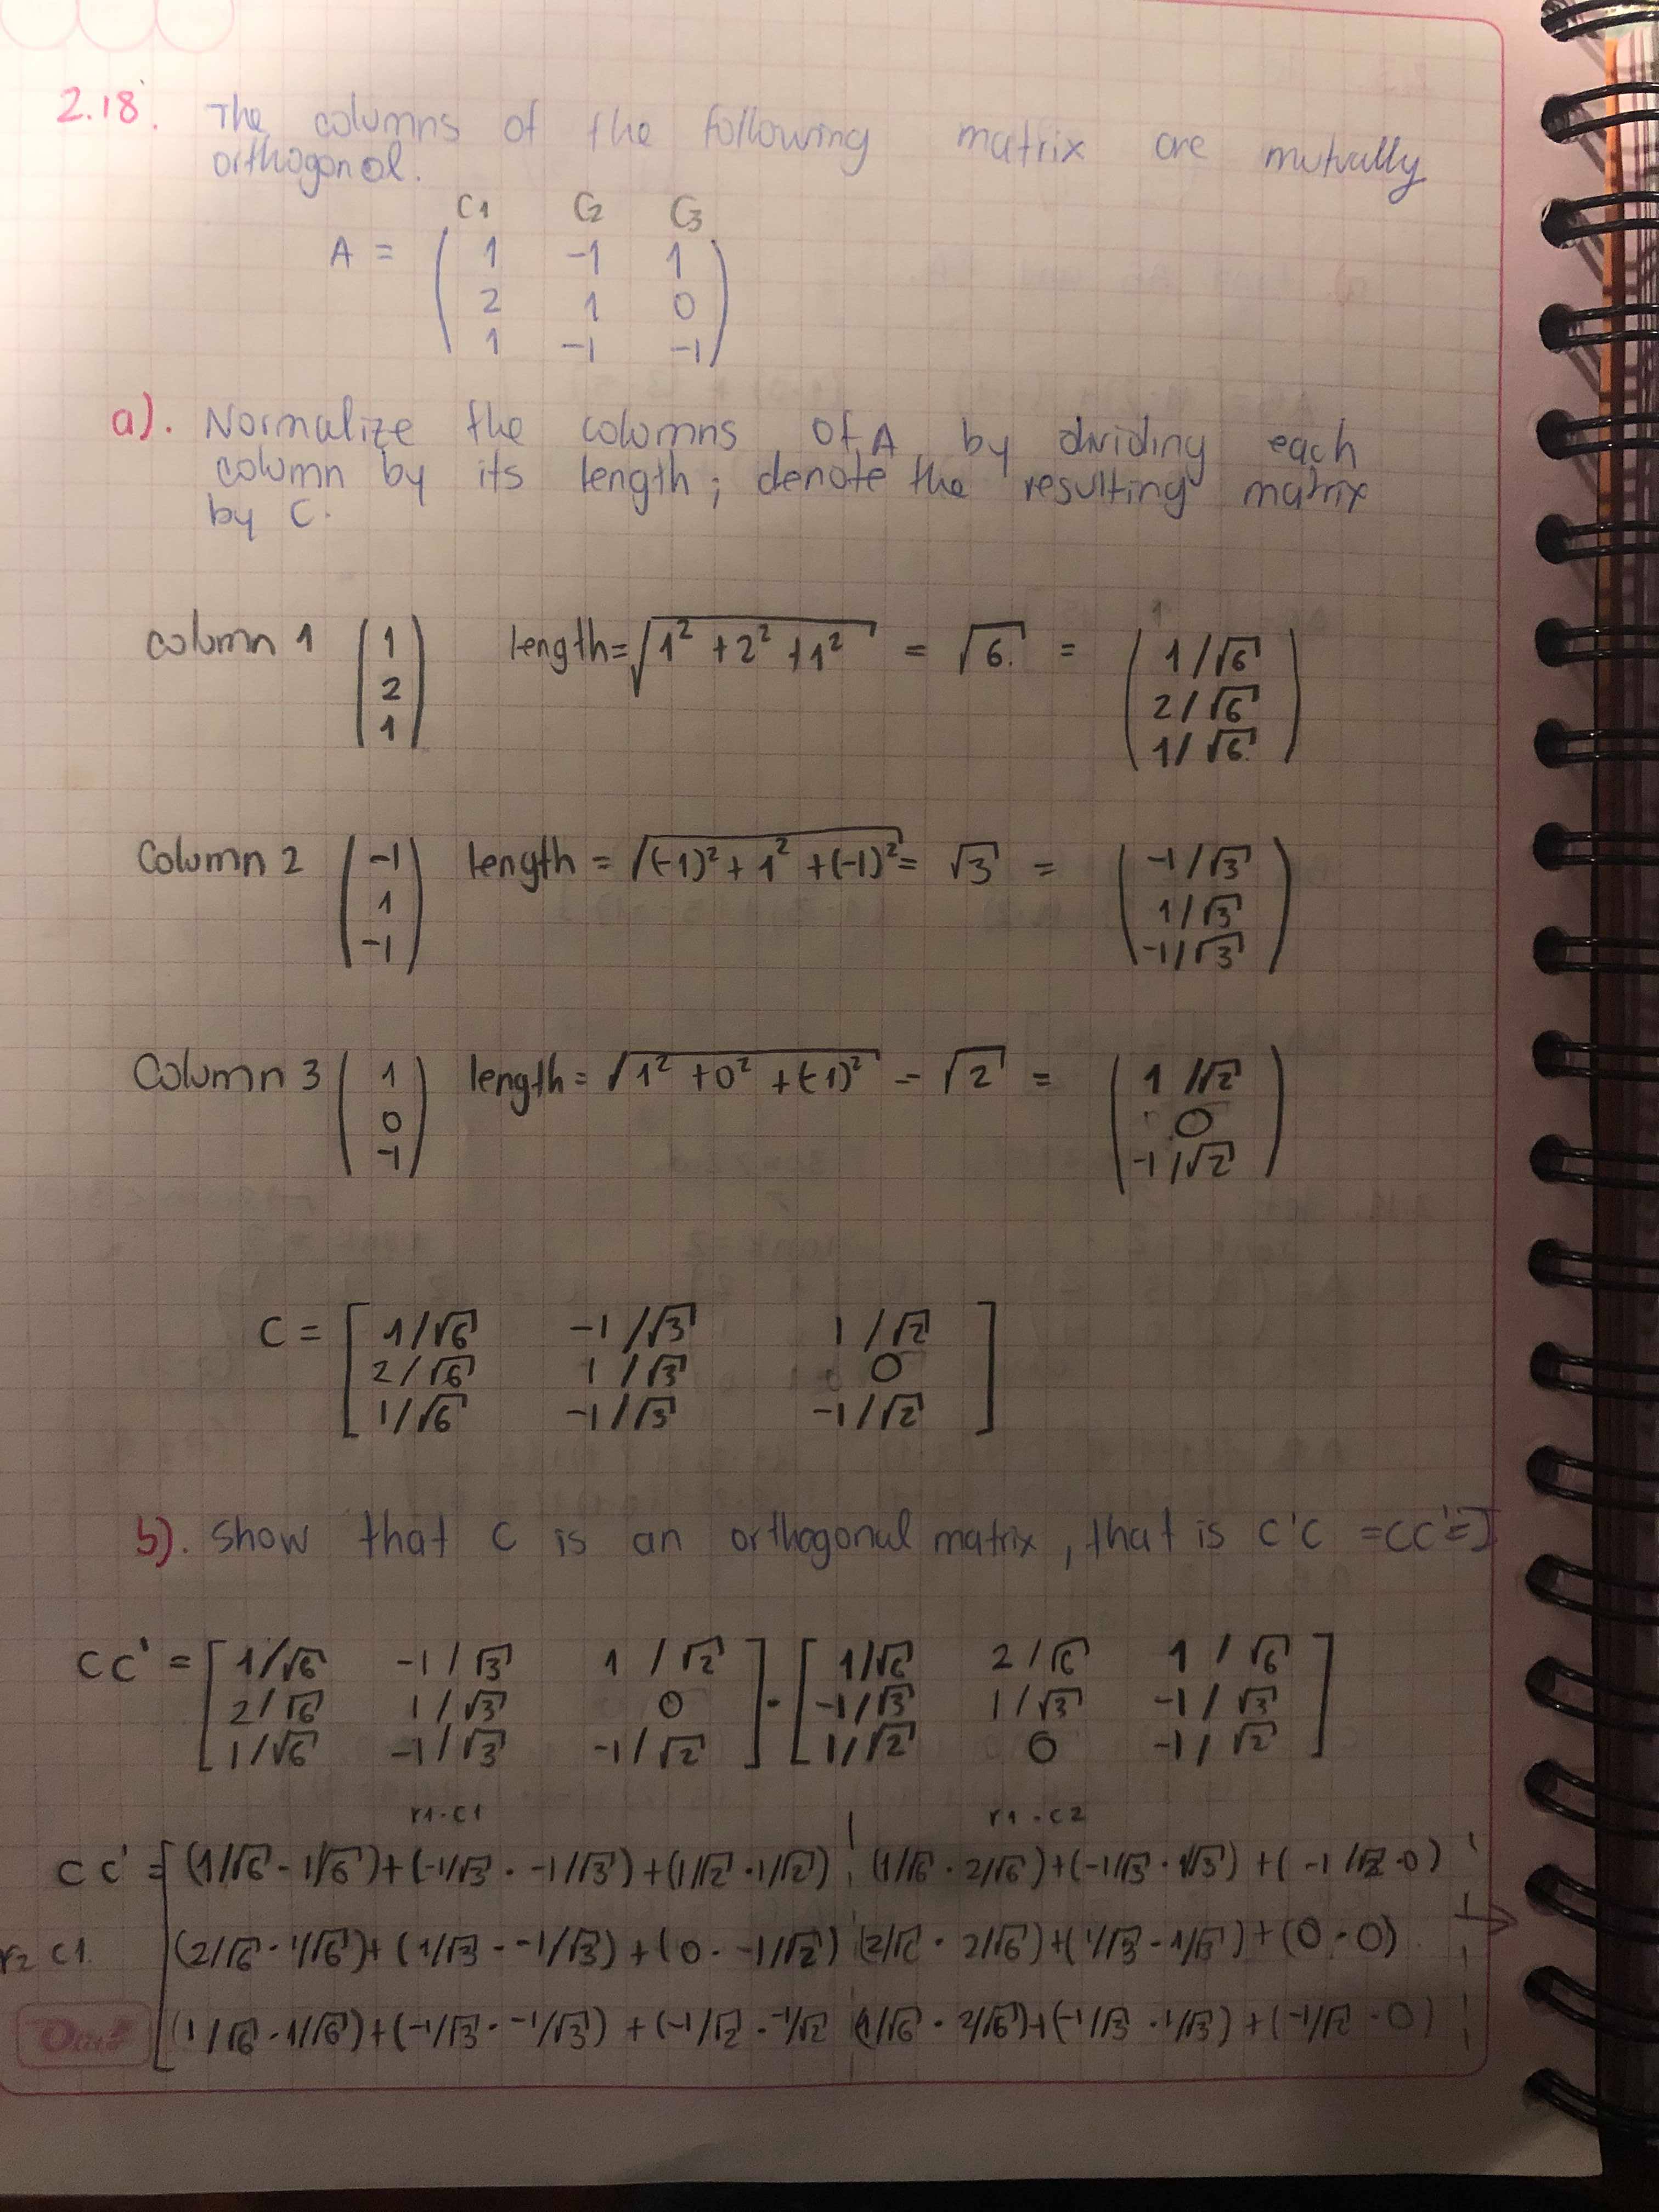 2.18. The columns of the following matrix are mutually
orthogonal.
C1 C2 C3
A = ( 1 -1 1
2 1 0
1 -1 -1 )
a). Normalize the columns of A by dividing each
column by its length; denote the resulting matrix
by C.
column 1 ( 1 2 1 ) length = √1² + 2² + 1² = √6 = ( 1/√6 2/√6 1/√6 )
Column 2 ( -1 1 -1 ) length = √(-1)² + 1² + (-1)² = √3 = ( -1/√3 1/√3 -1/√3 )
Column 3 ( 1 0 -1 ) length = √1² + 0² + (-1)² = √2 = ( 1/√2 0 -1/√2 )
C = [ 1/√6 -1/√3 1/√2
2/√6 1/√3 0
1/√6 -1/√3 -1/√2 ]
b). Show that C is an orthogonal matrix, that is C'C = CC' = I
CC' = [ 1/√6 -1/√3 1/√2 ] · [ 1/√6 2/√6 1/√6 ]
2/√6 1/√3 0 -1/√3 1/√3 -1/√3
1/√6 -1/√3 -1/√2 1/√2 0 -1/√2
r1·c1 r1·c2
CC' = [ (1/√6 · 1/√6) + (-1/√3 · -1/√3) + (1/√2 · 1/√2) (1/√6 · 2/√6) + (-1/√3 · 1/√3) + (-1/√2 · 0)
r2 c1 (2/√6 · 1/√6) + (1/√3 · -1/√3) + (0 · -1/√2) (2/√6 · 2/√6) + (1/√3 · 1/√3) + (0 · 0)
(1/√6 · 1/√6) + (-1/√3 · -1/√3) + (-1/√2 · -1/√2 (1/√6 · 2/√6) + (-1/√3 · 1/√3) + (-1/√2 · 0)